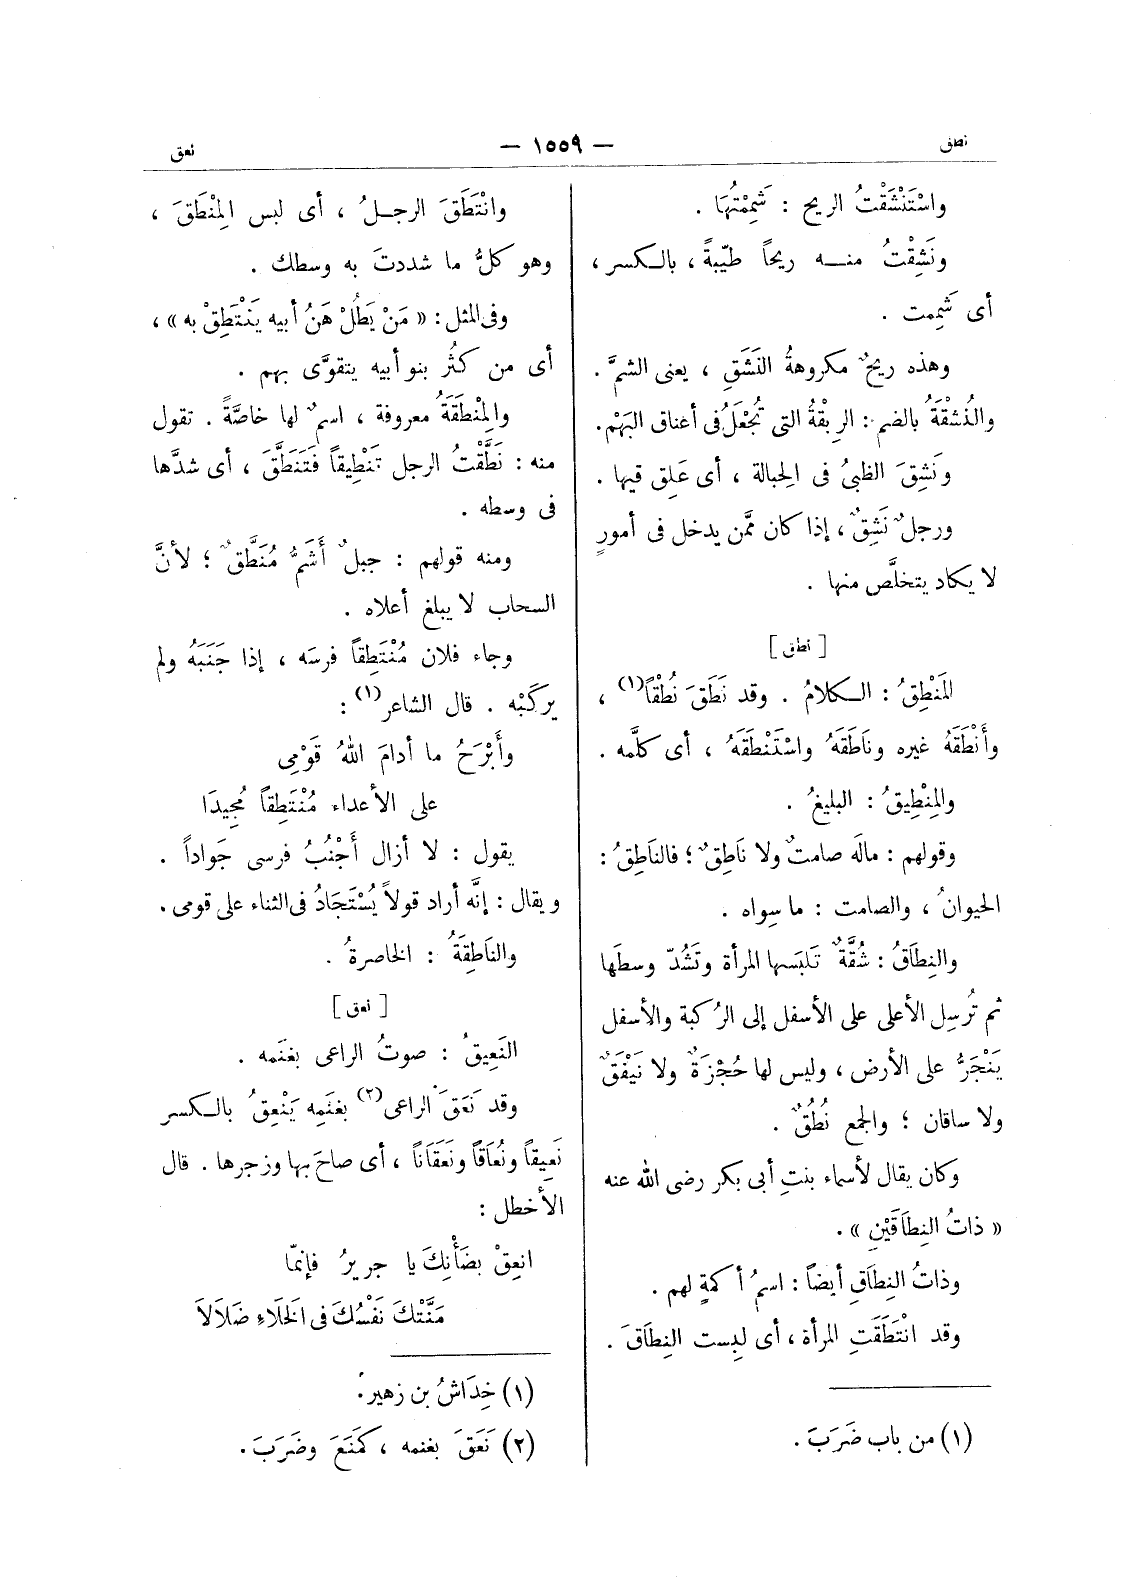 نطق
— ١٥٥٩ —
نعق
واسْتَنْشَقْتُ الريح : شَمِمْتُهَا .
ونَشِقْتُ منـــه ريحاً طيّبةً ، بالـكسر ،
أى شَمِمت .
وهذه ريحٌ مكروهةُ النَشَقِ ، يعنى الشمَّ .
والنُشْقَةُ بالضم : الرِبْقةُ التى تُجْعَلُ فى أعناق البَهْم.
ونَشِقَ الظبىُ فى الحِبالة ، أى عَلِق فيها .
ورجلٌ نَشِقٌ ، إذا كان ممَّن يدخل فى أمورٍ
لا يكاد يتخلَّص منها .
[ نطق ]
المَنْطِقُ : الـكلامُ . وقد نَطَقَ نُطْقاً(١) ،
وأَنْطَقَهُ غيره ونَاطَقَهُ واسْتَنْطَقَهُ ، أى كلَّمه .
والمِنْطِيقُ : البليغُ .
وقولهم : مالَه صامتٌ ولا ناطِقٌ ؛ فالنَاطِقُ :
الحيوانُ ، والصامت : ما سِواه .
والنِطَاقُ : شُقَّةٌ تَلبَسها المرأة وتَشُدّ وسطَها
ثم تُرسِل الأعلى على الأسفل إلى الرُكبة والأسفل
يَنْجَرُّ على الأرض ، وليس لها حُجْزَةٌ ولا نَيْفَقٌ
ولا ساقان ؛ والجمع نُطُقٌ .
وكان يقال لأسماء بنتِ أبى بكر رضى الله عنه
« ذاتُ النِطَاقَيْنِ » .
وذاتُ النِطَاقِ أيضاً : اسمُ أكمةٍ لهم .
وقد انْتَطَقَتِ المرأة ، أى لبِست النِطَاقَ .
(١) من باب ضَرَبَ .
وانْتَطَقَ الرجـلُ ، أى لبس المِنْطَقَ ،
وهو كلُّ ما شددتَ به وسطك .
وفى المثل : « مَنْ يَطُلْ هَنُ أبيه يَنْتَطِقْ به » ،
أى من كثُر بنو أبيه يتقوَّى بهم .
والمِنْطَقَةُ معروفة ، اسمٌ لها خاصَّةً . تقول
منه : نَطَّقْتُ الرجل تَنْطِيقاً فَتَنَطَّقَ ، أى شدَّها
فى وسطه .
ومنه قولهم : جبلٌ أَشَمُّ مُنَطَّقٌ ؛ لأنَّ
السحاب لا يبلغ أعلاه .
وجاء فلان مُنْتَطِقاً فرسَه ، إذا جَنَبَهُ ولم
يركَبْه . قال الشاعر(١) :
وأَبْرَحُ ما أدامَ اللهُ قَوْمِى
على الأعداء مُنْتَطِقاً مُجِيدَا
يقول : لا أزال أَجْنُبُ فرسى جَواداً .
ويقال : إنَّه أراد قولاً يُسْتَجَادُ فى الثناء على قومى .
والنَاطِقَةُ : الخاصرةُ .
[ نعق ]
النَعِيقُ : صوتُ الراعى بغنَمه .
وقد نَعَقَ الراعى(٢) بغنَمِه يَنْعِقُ بالـكسر
نَعِيقاً ونُعَاقاً ونَعَقَاناً ، أى صاحَ بها وزجرها . قال
الأخطل :
انعِقْ بضَأْنِكَ يا جريرُ فإنمّا
مَنَّتْكَ نَفْسُكَ فى الخَلَاءِ ضَلَالَا
(١) خِدَاشُ بن زهير .
(٢) نَعَقَ بغنمه ، كمَنَعَ وضَرَبَ .